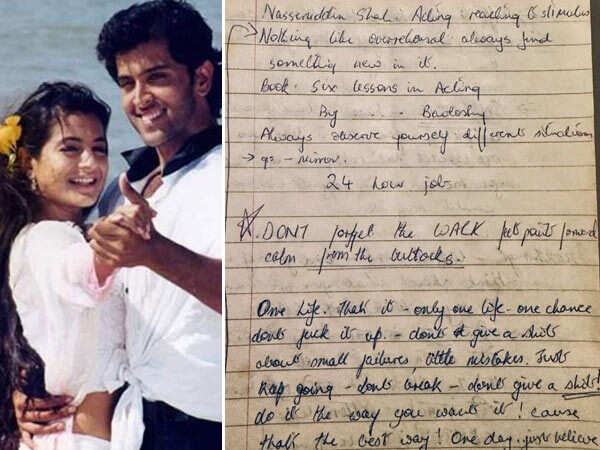 Nasseruddin Shah: Acting reacting to stimulus
Nothing like overrehearsal always find
something new in it.
Book: Six lessons in Acting
By . .
Always observe yourself different situations
→ gs - mirror.
24 hour job
DONT forget the WALK feet point forward
calm from the buttocks.
One Life. that it - only one life - one chance
dont fuck it up. - dont give a shit
about small failures, little mistakes. Just
Keep going - dont break - dont give a shit!
do it the way you want it! cause
that the best way! One day..just believe